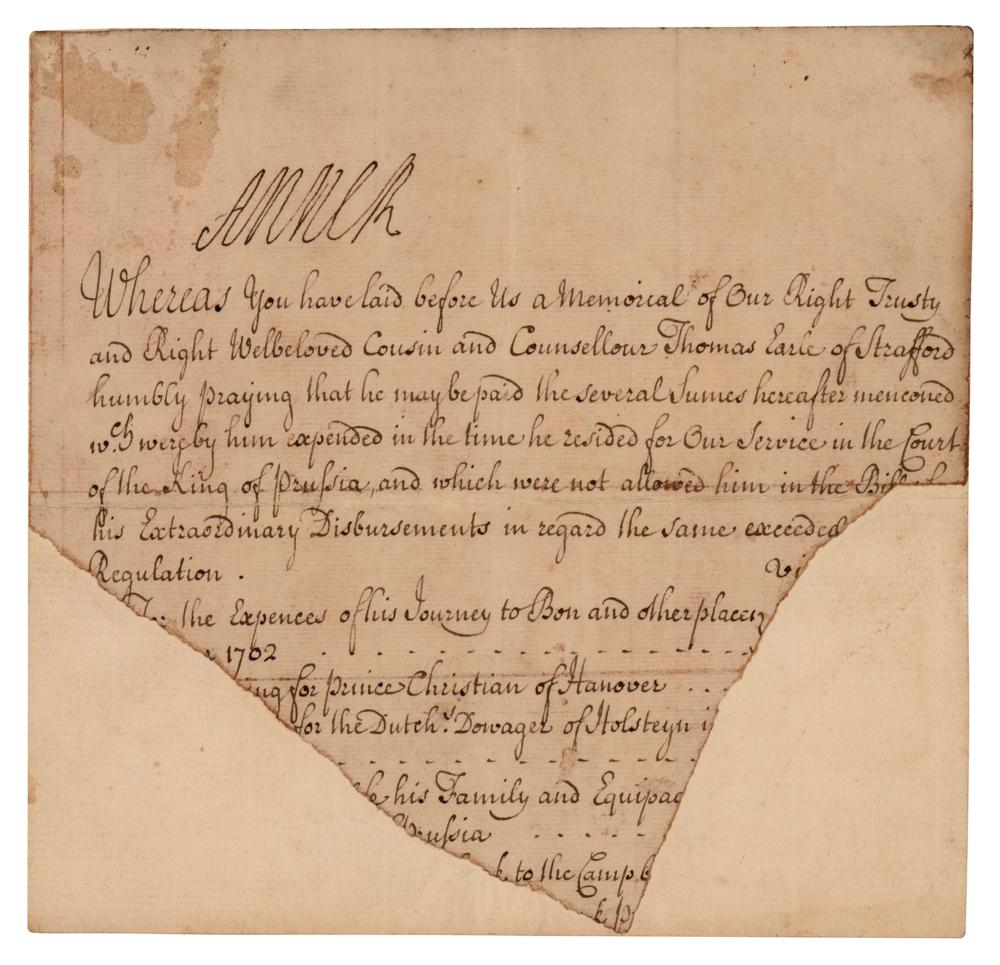 ANNE R
Whereas You have laid before Us a Memorial of Our Right Trusty
and Right Welbeloved Cousin and Counsellour Thomas Earle of Strafford
humbly praying that he may be paid the several Sumes hereafter menconed
wch. were by him expended in the time he resided for Our Service in the Court
of the King of Prussia, and which were not allowed him in the Bill
his Extraordinary Disbursements in regard the same exceeded
Regulation . vi
the Expences of his Journey to Bon and other places
1702
ing for Prince Christian of Hanover
for the Dutchs. Dowager of Holsteyn i
his Family and Equipag
Prussia
k to the Camp b
k P